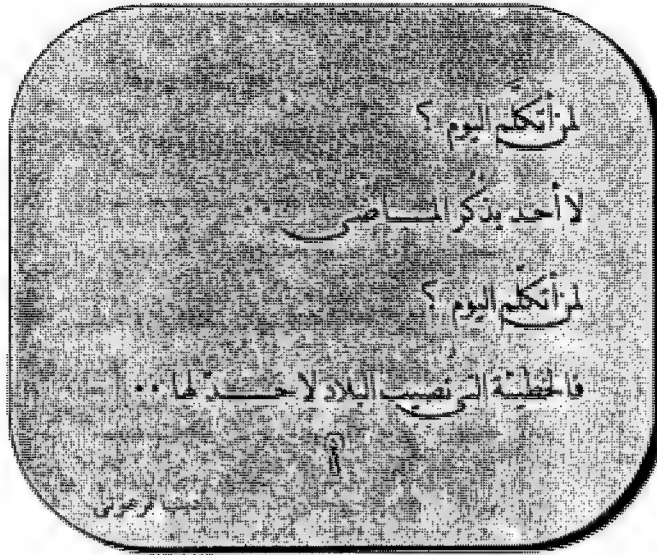 لمن أتكلّم اليوم ؟
لا أحد يذكُر الماضي ..
لمن أتكلّم اليوم ؟
فالخطيئة التي تصيب البلاد لا حدّ لها ..
فرعوني